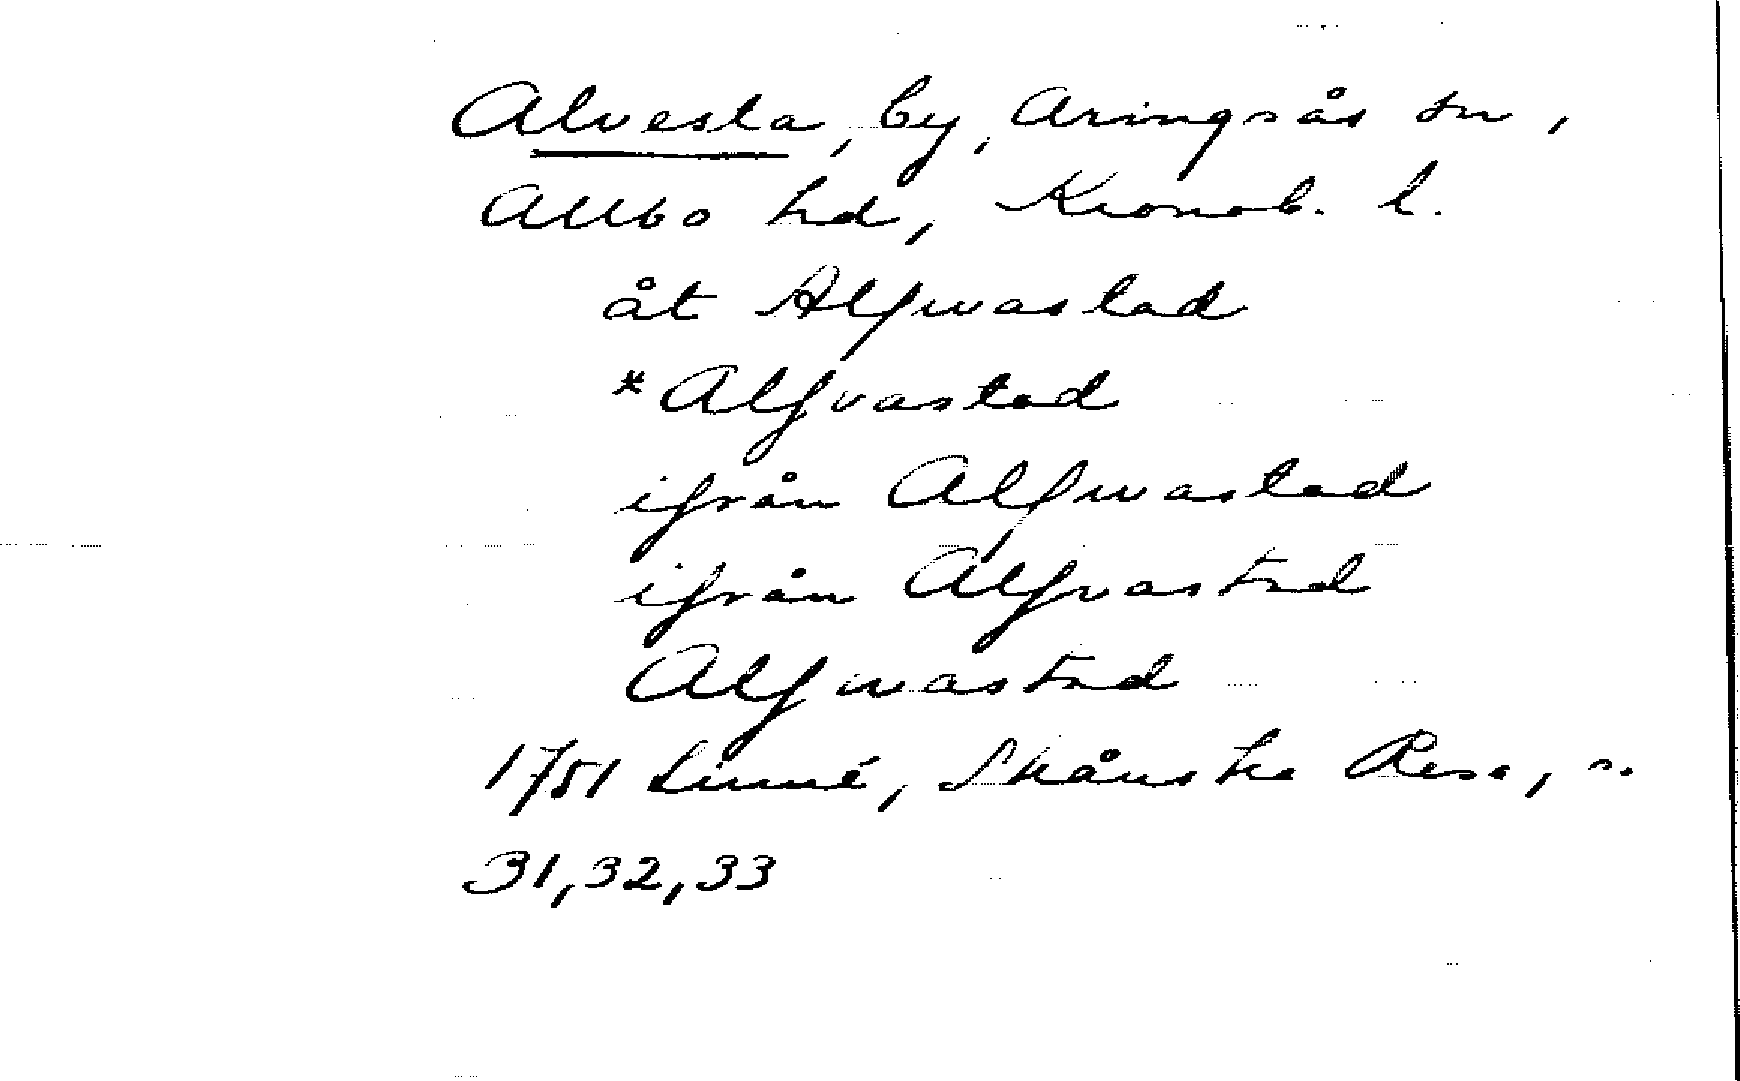 Alvesta, by, Aringsås sn,
Allbo hd, Kronob. l.
åt Alfwastad
*Alfvastad
ifrån Alfwastad
ifrån Alfvastad
Alfwastad
1751 Linné, Skånska Resa, s.
31, 32, 33